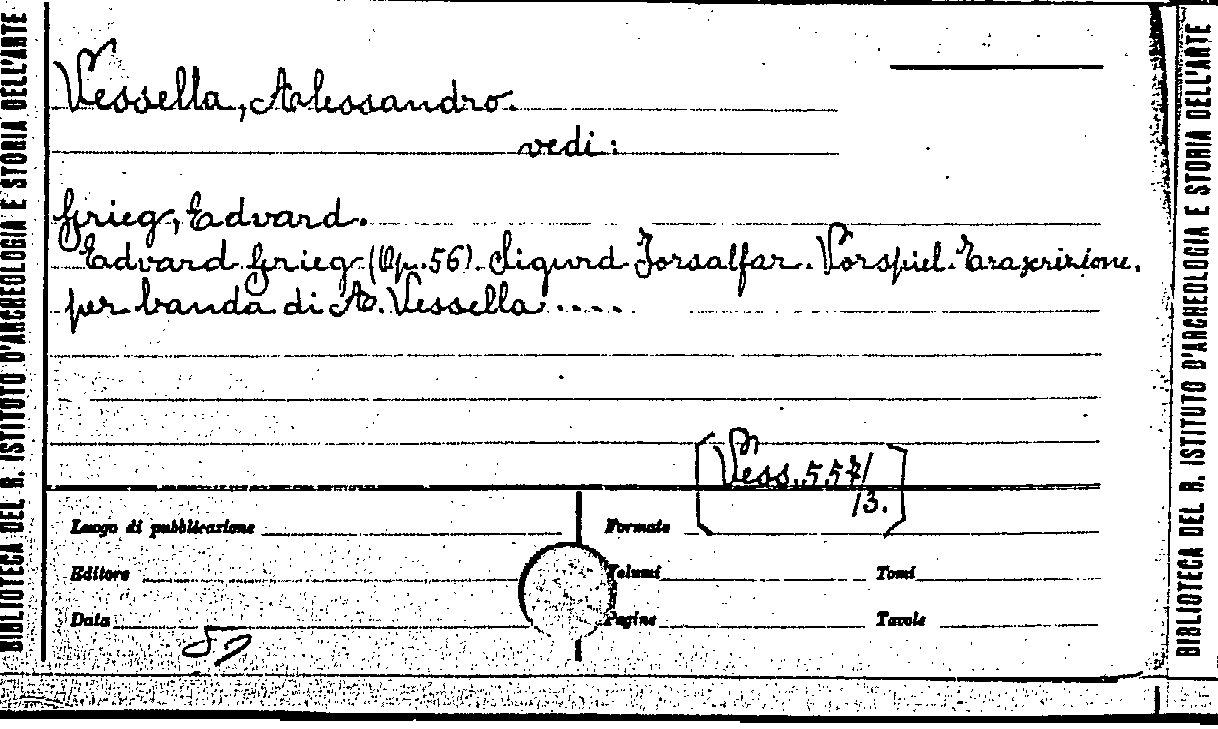 BIBLIOTECA DEL R. ISTITUTO D'ARCHEOLOGIA E STORIA DELL'ARTE
Vessella, Alessandro.
vedi:
Grieg, Edvard.
Edvard Grieg (Op. 56). Sigurd Jorsalfar. Vorspiel. Trascrizione.
per banda di A. Vessella.....
[Vess. 557/
/3.]
Luogo di pubblicazione
Formato
Editore
Volumi
Tomi
Data
Pagine
Tavole
BIBLIOTECA DEL R. ISTITUTO D'ARCHEOLOGIA E STORIA DELL'ARTE